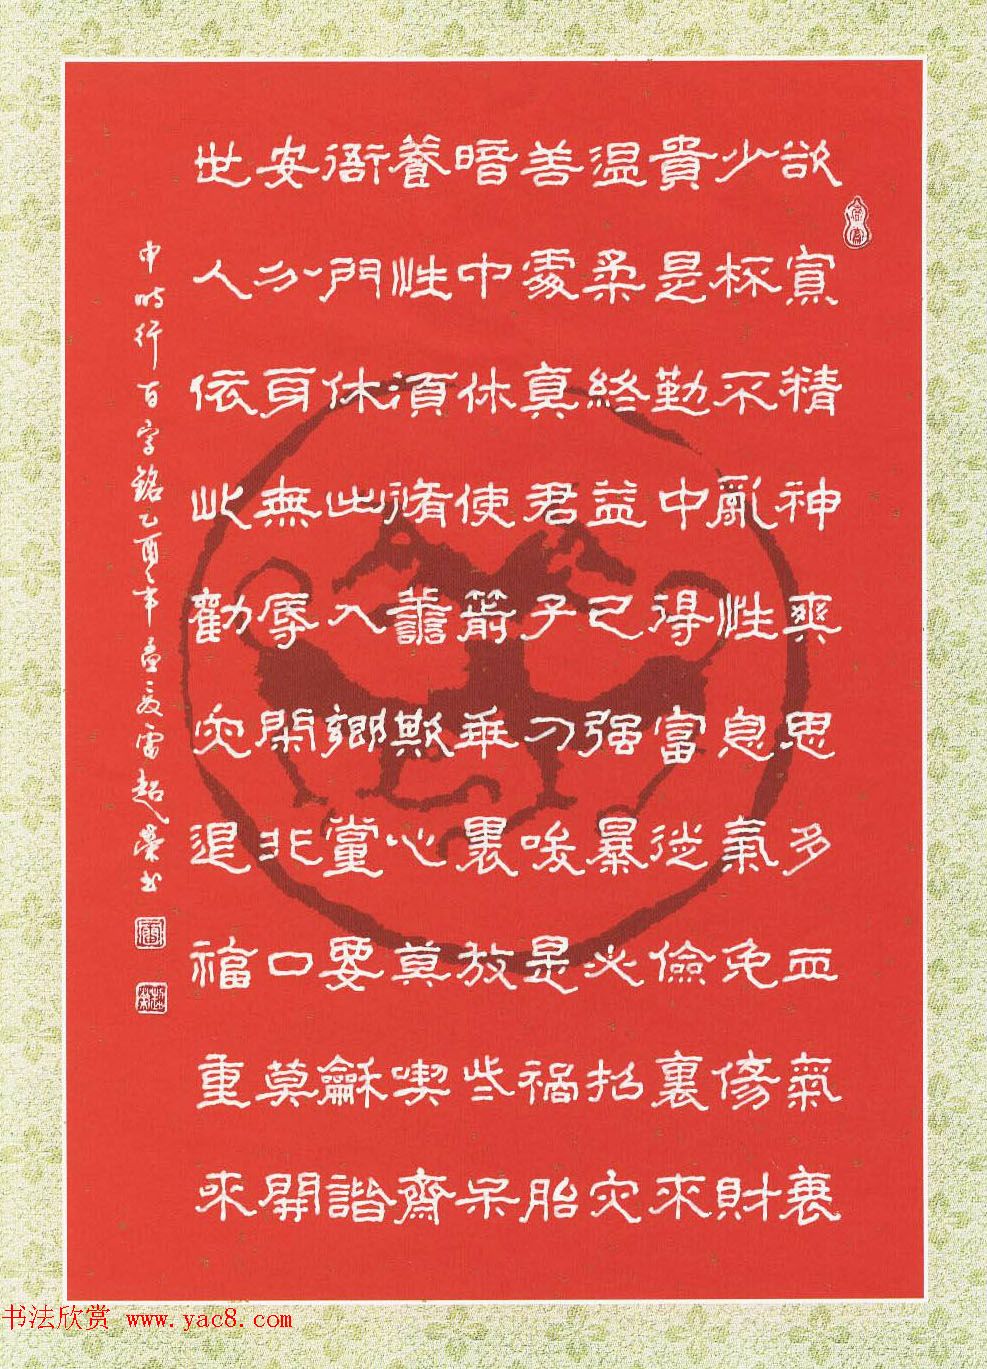 欲寡精神爽思多血氣衰
少杯不亂性息氣免傷財
貴是勤中得富從儉裏來
温柔終益己强暴必招灾
善處真君子刁唆是禍胎
暗中休使箭乖裏放些呆
養性須脩善欺心莫喫齋
衙門休出入鄉黨要龢諧
安分身無辱閑非口莫開
世人依此勸灾退福重來
申時行百字銘乙酉年孟夏雷超榮書
书法欣赏 www.yac8.com